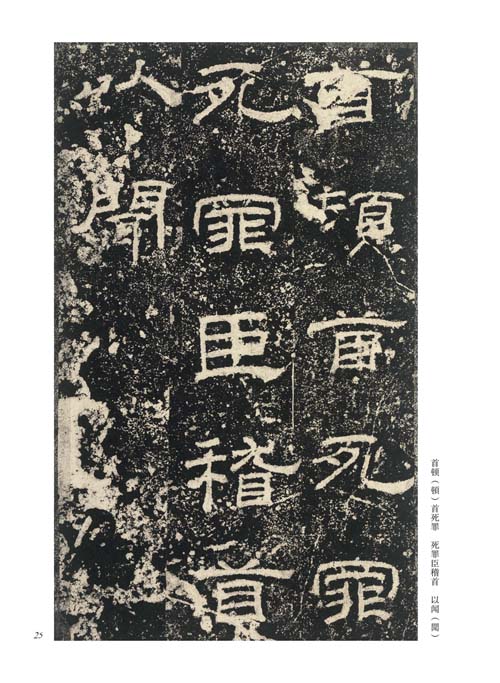 首頓首死罪
死罪臣稽首
以聞
首顿（頓）首死罪　死罪臣稽首　以闻（聞）
25